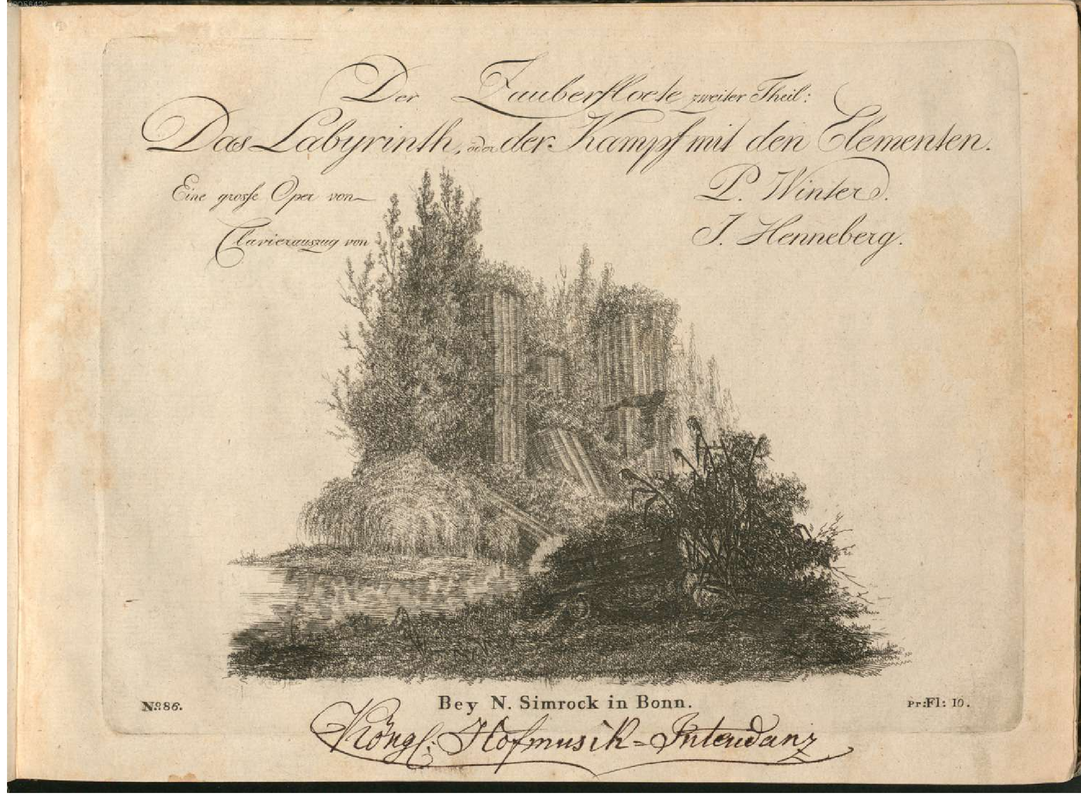 Der Zauberfloete zweiter Theil:
Das Labyrinth, oder der Kampf mit den Elementen.
Eine grosse Oper von P. Winter.
Clavierauszug von J. Henneberg.
No. 86. Bey N. Simrock in Bonn. Pr: Fl: 10.
Köngl: Hofmusik=Intendanz